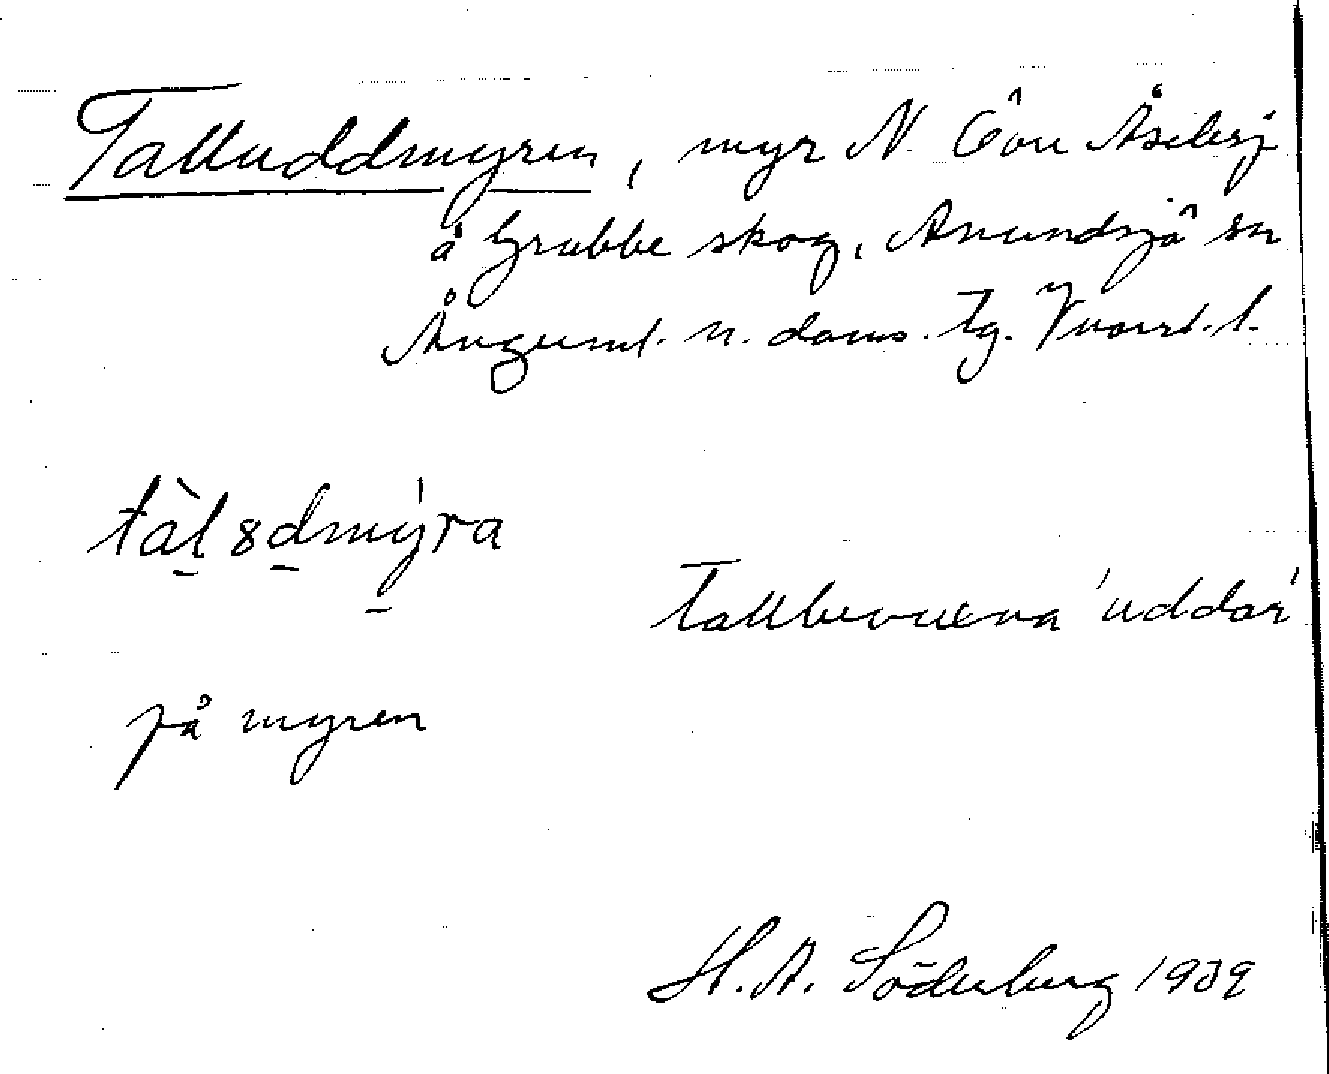 Talluddmyren, myr N Åselesj
å Grubbe skog, Anundsjö sn
Ångerml. n. doms. tg.
tàl 8dmy̍ra
Tallbevuxna 'uddar'
på myren
H. A. Söderberg 1939